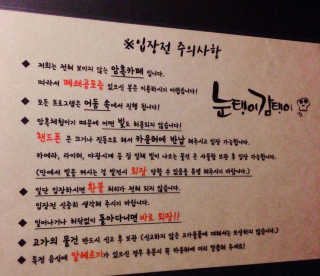 ※입장전 주의사항
◆ 저희는 전혀 보이지 않는 암흑카페 입니다.
따라서 폐쇄공포증 있으신 분은 이용하시기 어렵습니다!
◆ 모든 프로그램은 어둠 속에서 진행 됩니다!
눈탱이감탱이
◆ 암흑체험이기 때문에 어떤 빛도 허용되지 않습니다!
핸드폰은 끄거나 진동으로 해서 카운터에 반납 해주시고 입장 가능합니다.
카메라, 라이터, 야광시계 등 점 만한 빛이 나오는 물건은 사물함 보관 후 입장 가능합니다.
(안에서 빛을 켜시는 걸 발견시 퇴장 당할 수 있음을 유념 해주시기 바랍니다.)
◆ 일단 입장하시면 환불 처리가 전혀 되지 않습니다.
입장전 신중히 생각해 주시기 바랍니다.
◆ 일어나거나 허락없이 돌아다니면 바로 퇴장!!
◆ 고가의 물건 반드시 신고 후 보관 (신고하지 않은 고가품들에 대해서는 보상하지 않습니다.)
◆ 특정 음식에 알레르기가 있으신 경우 주문시 꼭 카운터에 미리 말씀해 주세요!